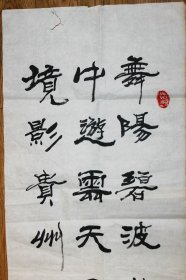 舞陽碧波
中遊雲天
境影貴州